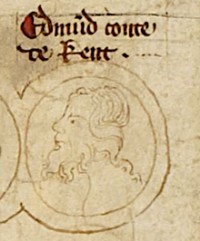 Edmūd conte
de Kent .